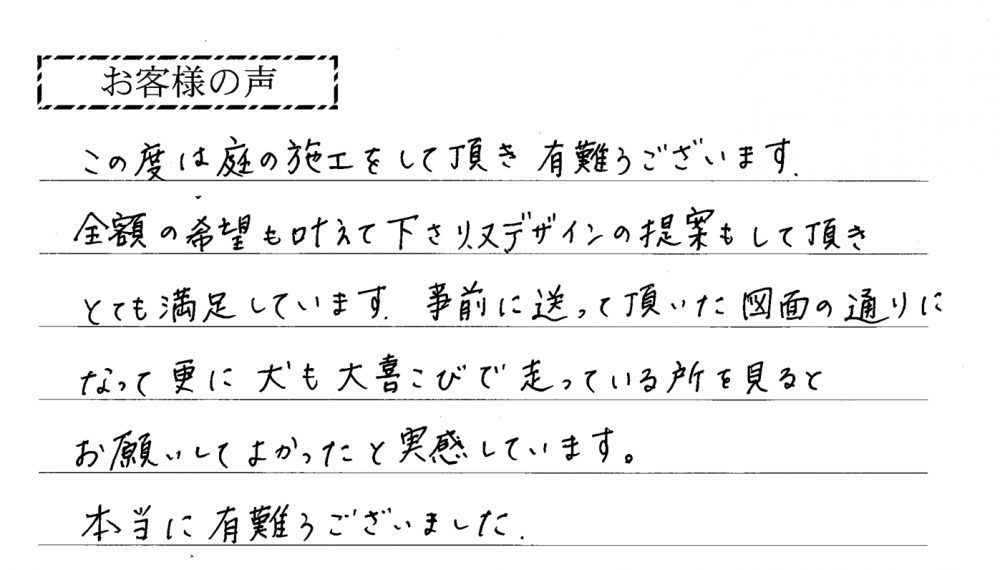 お客様の声
この度は庭の施工をして頂き 有難うございます.
金額の希望も叶えて下さり、又デザインの提案もして頂き
とても満足しています. 事前に送って頂いた図面の通りに
なって更に犬も大喜こびで走っている所を見ると
お願いしてよかったと実感しています。
本当に有難うございました.